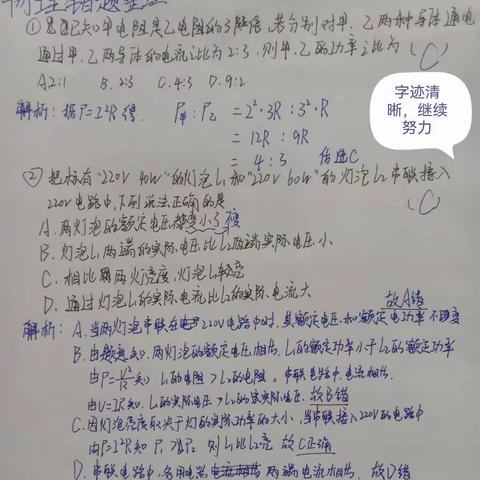 物理错题整理
①已知甲电阻是乙电阻的3倍,若分别对甲、乙两种导体通电
通过甲、乙两导体的电流之比为2:3,则甲、乙的功率之比为 (C)
A.2:1 B.2:3 C.4:3 D.9:2
解析:据P=I²R得. P甲:P乙 = 2²·3R : 3²·R
= 12R : 9R
= 4 : 3 故选C
字迹清
晰,继续
努力
②把标有"220V 40W"的灯泡L₁和"220V 60W"的灯泡L₂串联接入
220V电路中,下列说法正确的是 (C)
A.两灯泡的额定电压都变小了
B.灯泡L₁两端的实际电压比L₂两端实际电压小
C.相比两灯亮度,灯泡L₁较亮
D.通过灯泡L₁的实际电流比L₂的实际电流大
故A错
解析:A.当两灯泡串联在220V电路中时,其额定电压和额定电功率不改变
B.由题意知,两灯泡的额定电压相等,L₁的额定功率小于L₂的额定功率
由P=U²/R知 L₁的电阻>L₂的电阻。串联电路中,电流相等.
由U=IR知,L₁的实际电压>L₂的实际电压.故B错
C.因灯泡亮度取决于灯的实际功率的大小,当串联接入220V的电路中
由P=I²R知 P₁>P₂ 则L₁比L₂亮 故C正确
D.串联电路中,各用电器 两端电流相等,故D错